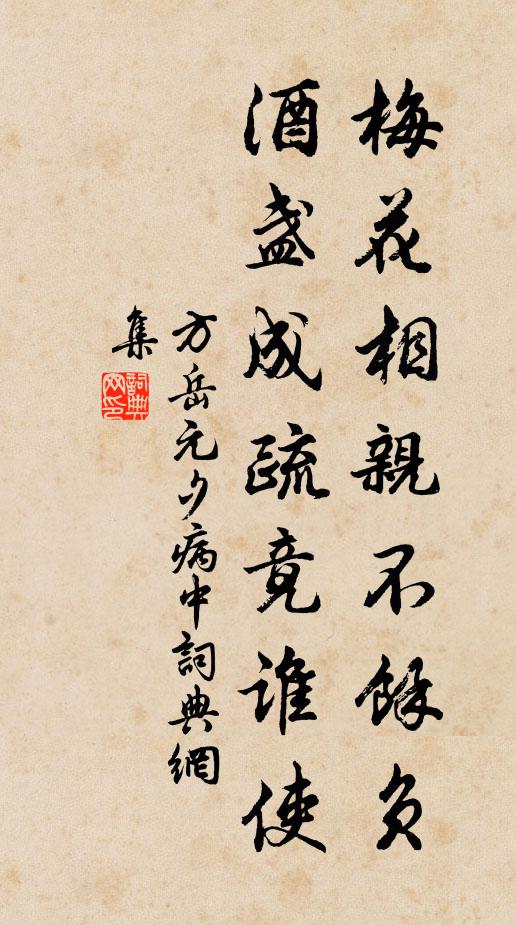 梅花相親不餘負
酒盞成疏竟誰使
方岳元夕病中詞典網
集
詞典网印